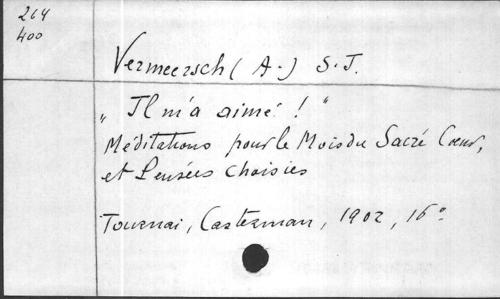 264
400
Vermeersch (A.) S.J.
„ Il m'a aimé ! "
Méditations pour le Mois du Sacré Cœur,
et Pensées choisies
Tournai, Casterman, 1902, 16°